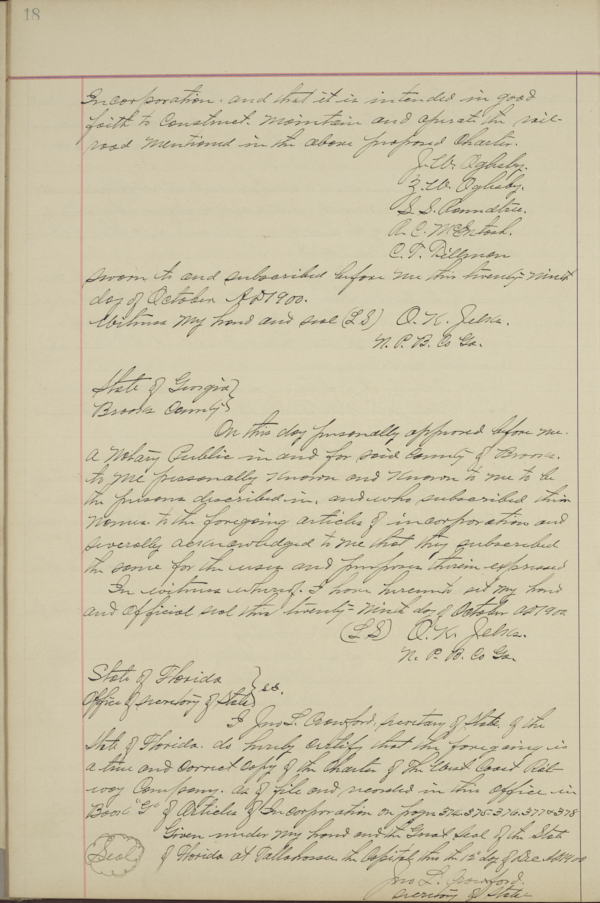 18
Incorporation. and that it is intended in good
faith to Construct. Maintain and operate the rail-
road Mentioned in the above proposed Charter.
J. W. Oglesby.
Z. W. Oglesby.
S. S. Roundtree.
A. C. McIntosh.
C. T. Tillman
sworn to and subscribed before me this twenty ninth
day of October AD 1900.
Witness My hand and seal (LS) O. K. Jelks.
N. P. B. Co Ga.
State of Georgia }
Brooks County }
On this day personally appeared before me.
a Notary Public in and for said County of Brooks.
to me personally Known and Known to me to be
the persons described in, and who subscribed their
Names to the foregoing articles of incorporation and
severally acknowledged to me that they subscribed
the same for the uses and purposes therein expressed
In witness whereof. I have hereunto set my hand
and Official seal this twenty-ninth day of October AD 1900
(LS) O. K. Jelks.
N. P. B. Co Ga.
State of Florida }
Office of secretary of State } ss.
I Jno L. Crawford, secretary of State of the
State of Florida. do hereby certify that the foregoing is
a true and correct copy of the Charter of The West Coast Rail
way Company. as of file and recorded in this office in
Book "G" of Articles of Incorporation on 374-375-376-377&378
Given under My hand and the Great Seal of the State
Seal of Florida at Tallahassee the Capital, this the 12" day of Dec AD 1900
Jno L. Crawford.
secretary of State